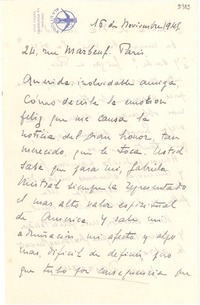 15 de Noviembre 1945
24, rue Marbeuf. Paris
Querida inolvidable amiga
Cómo decirle la emotion
feliz que me causa la
noticia del gran honor tan
merecido que le toca. Usted
sabe que para mi, Gabriela
Mistral siempre ha representado
el mas alto valor espiritual
de America. Y sabe mi
admiracion, mi afecto y algo
mas, dificil de definir pero
que tubo por consecuencia un